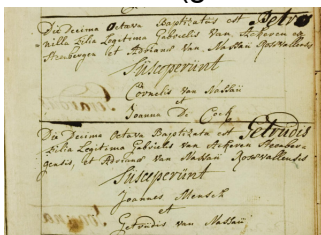 Die Decima Octava Baptizatus est Petro
nilla Filia Legitima Gabrielis van Ackeren ex
Steenbergen et Adriana van Nassau Rosvallensis
Susceperunt
Cornelis van Nassau
et
Joanna De Cock
Die Decima Octava Baptizata est Getrudis
Filia Legitima Gabrielis van Ackeren Steenber-
gensis, et Adriana van Nassau Rosvallensis
Susceperunt
Joannes Mensch
et
Getrudis van Nassau